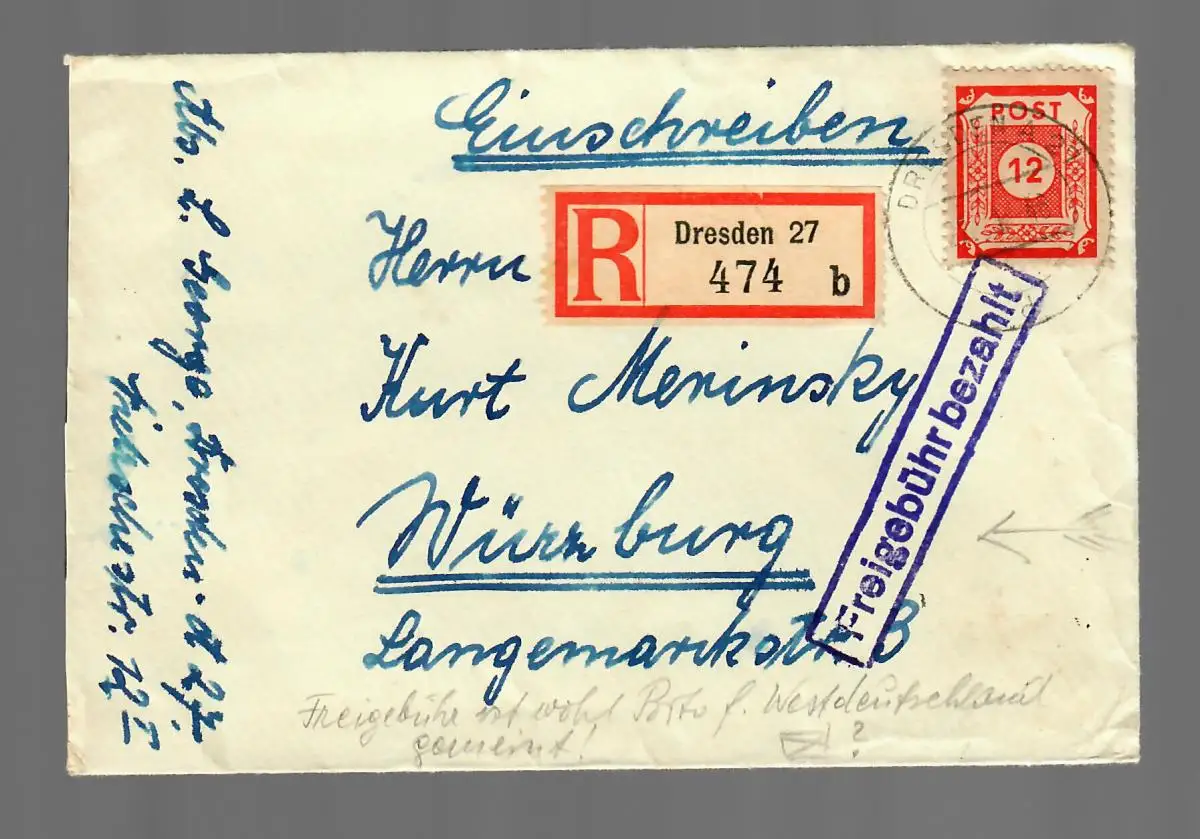 Einschreiben
POST
12
DRESDEN A 27
R
Dresden 27
474 b
Herrn
Kurt Merinsky
Würzburg
Langemarkstr. 8
Freigebühr bezahlt
Abs. L. Dresden - A 27,
12 I
Freigebühr ist wohl Porto f. Westdeutschland
gemeint! ?